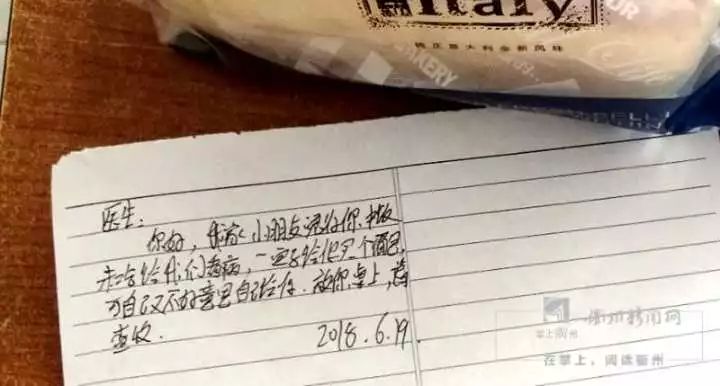 Italy
BAKERY
医生:
你好,我家小朋友说你中饭
未吃给我们看病,一定要给你买个面包,
可自己又不好意思自己给你.放你桌上,请
查收.
2018.6.19.
掌上衢州
衢州新闻网
在掌上,阅读衢州